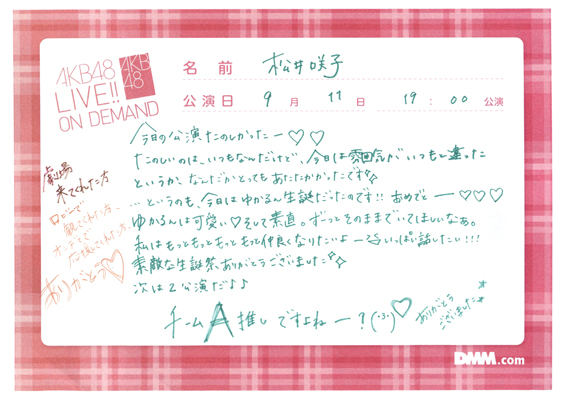 AKB48
LIVE!!
ON DEMAND
AKB
48
名前 松井咲子
公演日 9月11日 19:00公演
今日の公演たのしかったー♡♡
たのしいのは、いつもなんだけど、今日は雰囲気がいつもと違った
というか、なんだかとってもあたたかかったです
…というのも、今日はゆかるん生誕だったのです!! おめでとー♡♡♡
ゆかるんは可愛い♡そして素直。ずーっとそのままでいてほしいなぁ。
私はもっともっともっともっと仲良くなりたいよー いっぱい話したい!!!
素敵な生誕祭、ありがとうございました
次は2公演だ♪♪
チームA推しですよねー?(・3・)♡
ありがとう
ございました
劇場
来てくれた方
ロビーで
観てくれた方、
応援してくれた方、
ありがとう♡
DMM.com